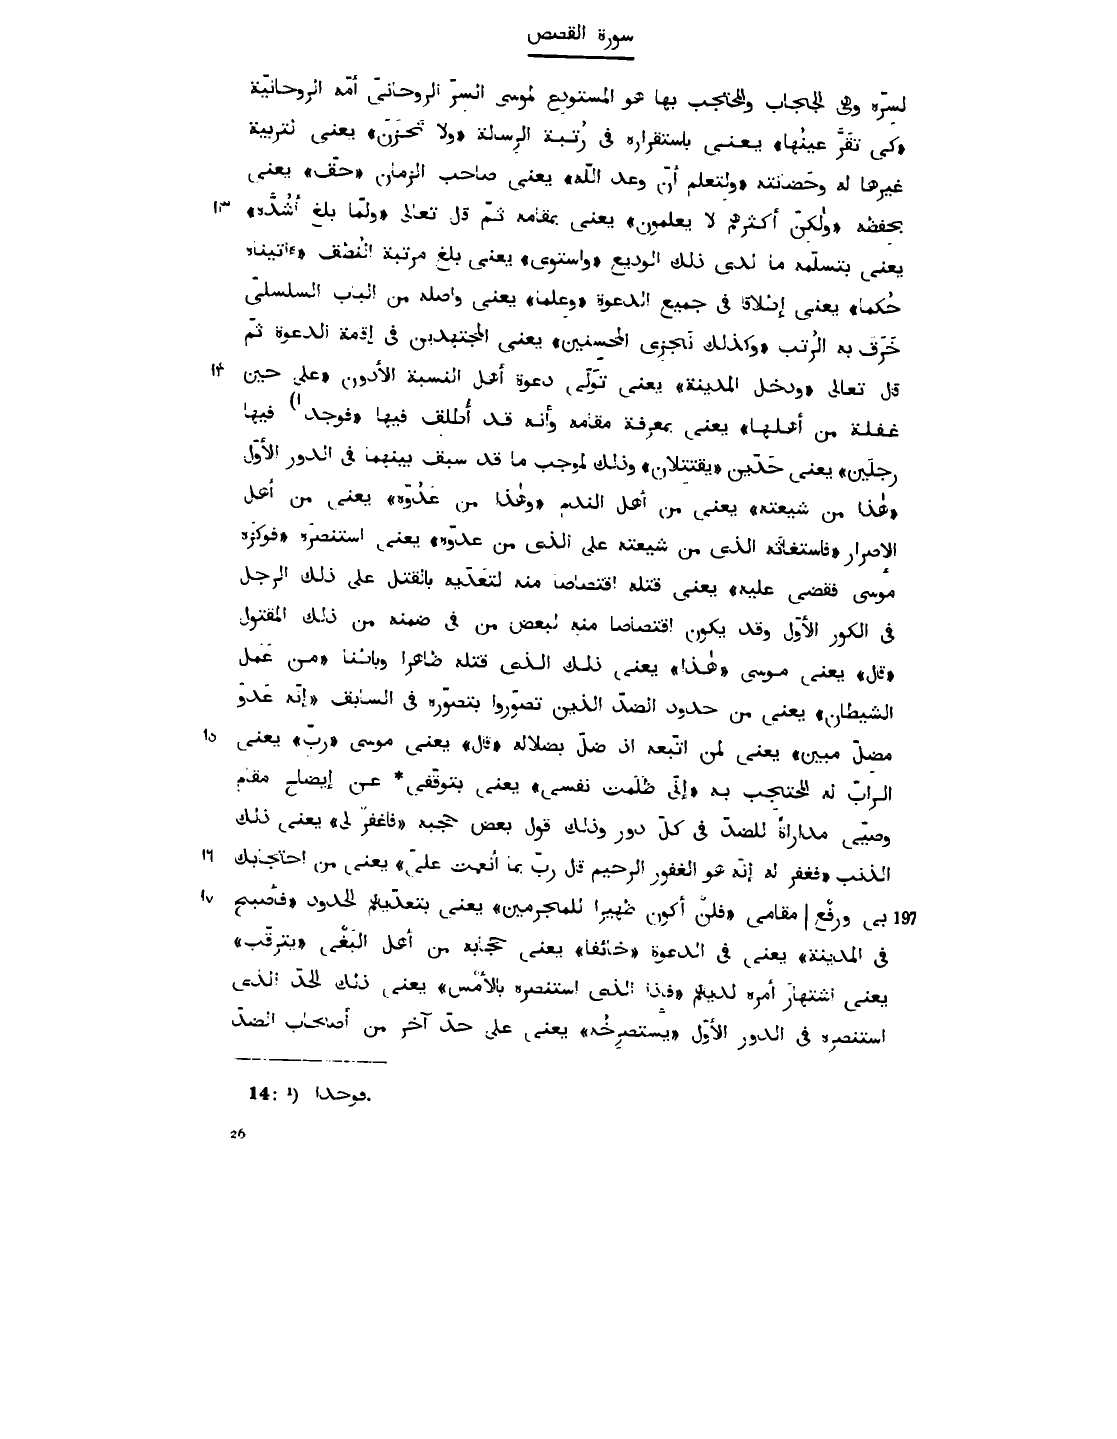 سورة القصص
لسرّه وهى الحجاب والمحتجب بها هو المستودع لموسى السرّ الروحانىّ أمّه الروحانيّة
«كى تقَرَّ عينُها» يعنى باستقراره فى رُتبة الرسالة «ولا تَحزَنَ» يعنى لتربية
غيرها له وحَضانته «ولتعلم أنّ وعد اللّه» يعنى صاحب الزمان «حقّ» يعنى
بحفظه «ولٰكنّ أكثرهم لا يعلمون» يعنى بمقامه ثمّ قال تعالى «ولمّا بلغ أشُدَّه» ١٣
يعنى بتسلّمه ما لدى ذلك الوديع «واستوى» يعنى بلغ مرتبة النُطق «ءاتيناه
حُكما» يعنى إطلاقا فى جميع الدعوة «وعلما» يعنى واصله من الباب السلسلىّ
خَرَق به الرُتب «وكذلك نَجزى المحسنين» يعنى المجتهدين فى إقامة الدعوة ثمّ
قال تعالى «ودخل المدينة» يعنى تولّى دعوة أهل النسبة الأدون «على حين ١٤
غفلة من أهلها» يعنى بمعرفة مقامه وأنه قد أُطلق فيها «فوجد¹⁾ فيها
رجلَين» يعنى حَدّين «يقتتلان» وذلك لموجب ما قد سبق بينهما فى الدور الأوّل
«هٰذا من شيعته» يعنى من أهل الندم «وهٰذا من عَدُوّه» يعنى من أهل
الإصرار «فاستغاثه الذى من شيعته على الذى من عدوّه» يعنى استنصره «فوكزه
موسى فقضى عليه» يعنى قتله اقتصاصا منه لتعَدّيه بالقتل على ذلك الرجل
فى الكور الأوّل وقد يكون اقتصاصا منه لبعض من فى ضمنه من ذلك المقتول
«قال» يعنى موسى «هٰذا» يعنى ذلك الذى قتله ظاهرا وباطنا «من عَمَل
الشيطان» يعنى من حدود الضدّ الذين تصوّروا بتصوّره فى السابق «إنّه عَدوّ
مضلّ مبين» يعنى لمن اتّبعه اذ ضلّ بضلاله «قال» يعنى موسى «ربّ» يعنى ١٥
الرابّ له المحتجب به «إنّى ظلَمت نفسى» يعنى بتوقّفى* عن إيضاح مقام
وصيّى مداراةً للضدّ فى كلّ دور وذلك قول بعض حجبه «فاغفرْ لى» يعنى ذلك
الذنب «فغفر له إنّه هو الغفور الرحيم قال ربّ بما أنعمت علىّ» يعنى من احتجابك ١٦
197 بى ورفْع | مقامى «فلنْ أكون ظهيرا للمجرمين» يعنى بتعدّيهم الحدود «فأصبح ١٧
فى المدينة» يعنى فى الدعوة «خائفا» يعنى حجابه من أهل البَغْى «يترقّب»
يعنى اشتهارَ أمره لديهم «فاذا الذى استنصره بالأمْس» يعنى ذلك الحدّ الذى
استنصره فى الدور الأوّل «يستصرِخُه» يعنى على حدّ آخر من أصحاب الضدّ
14: ¹) فوحدا.
26